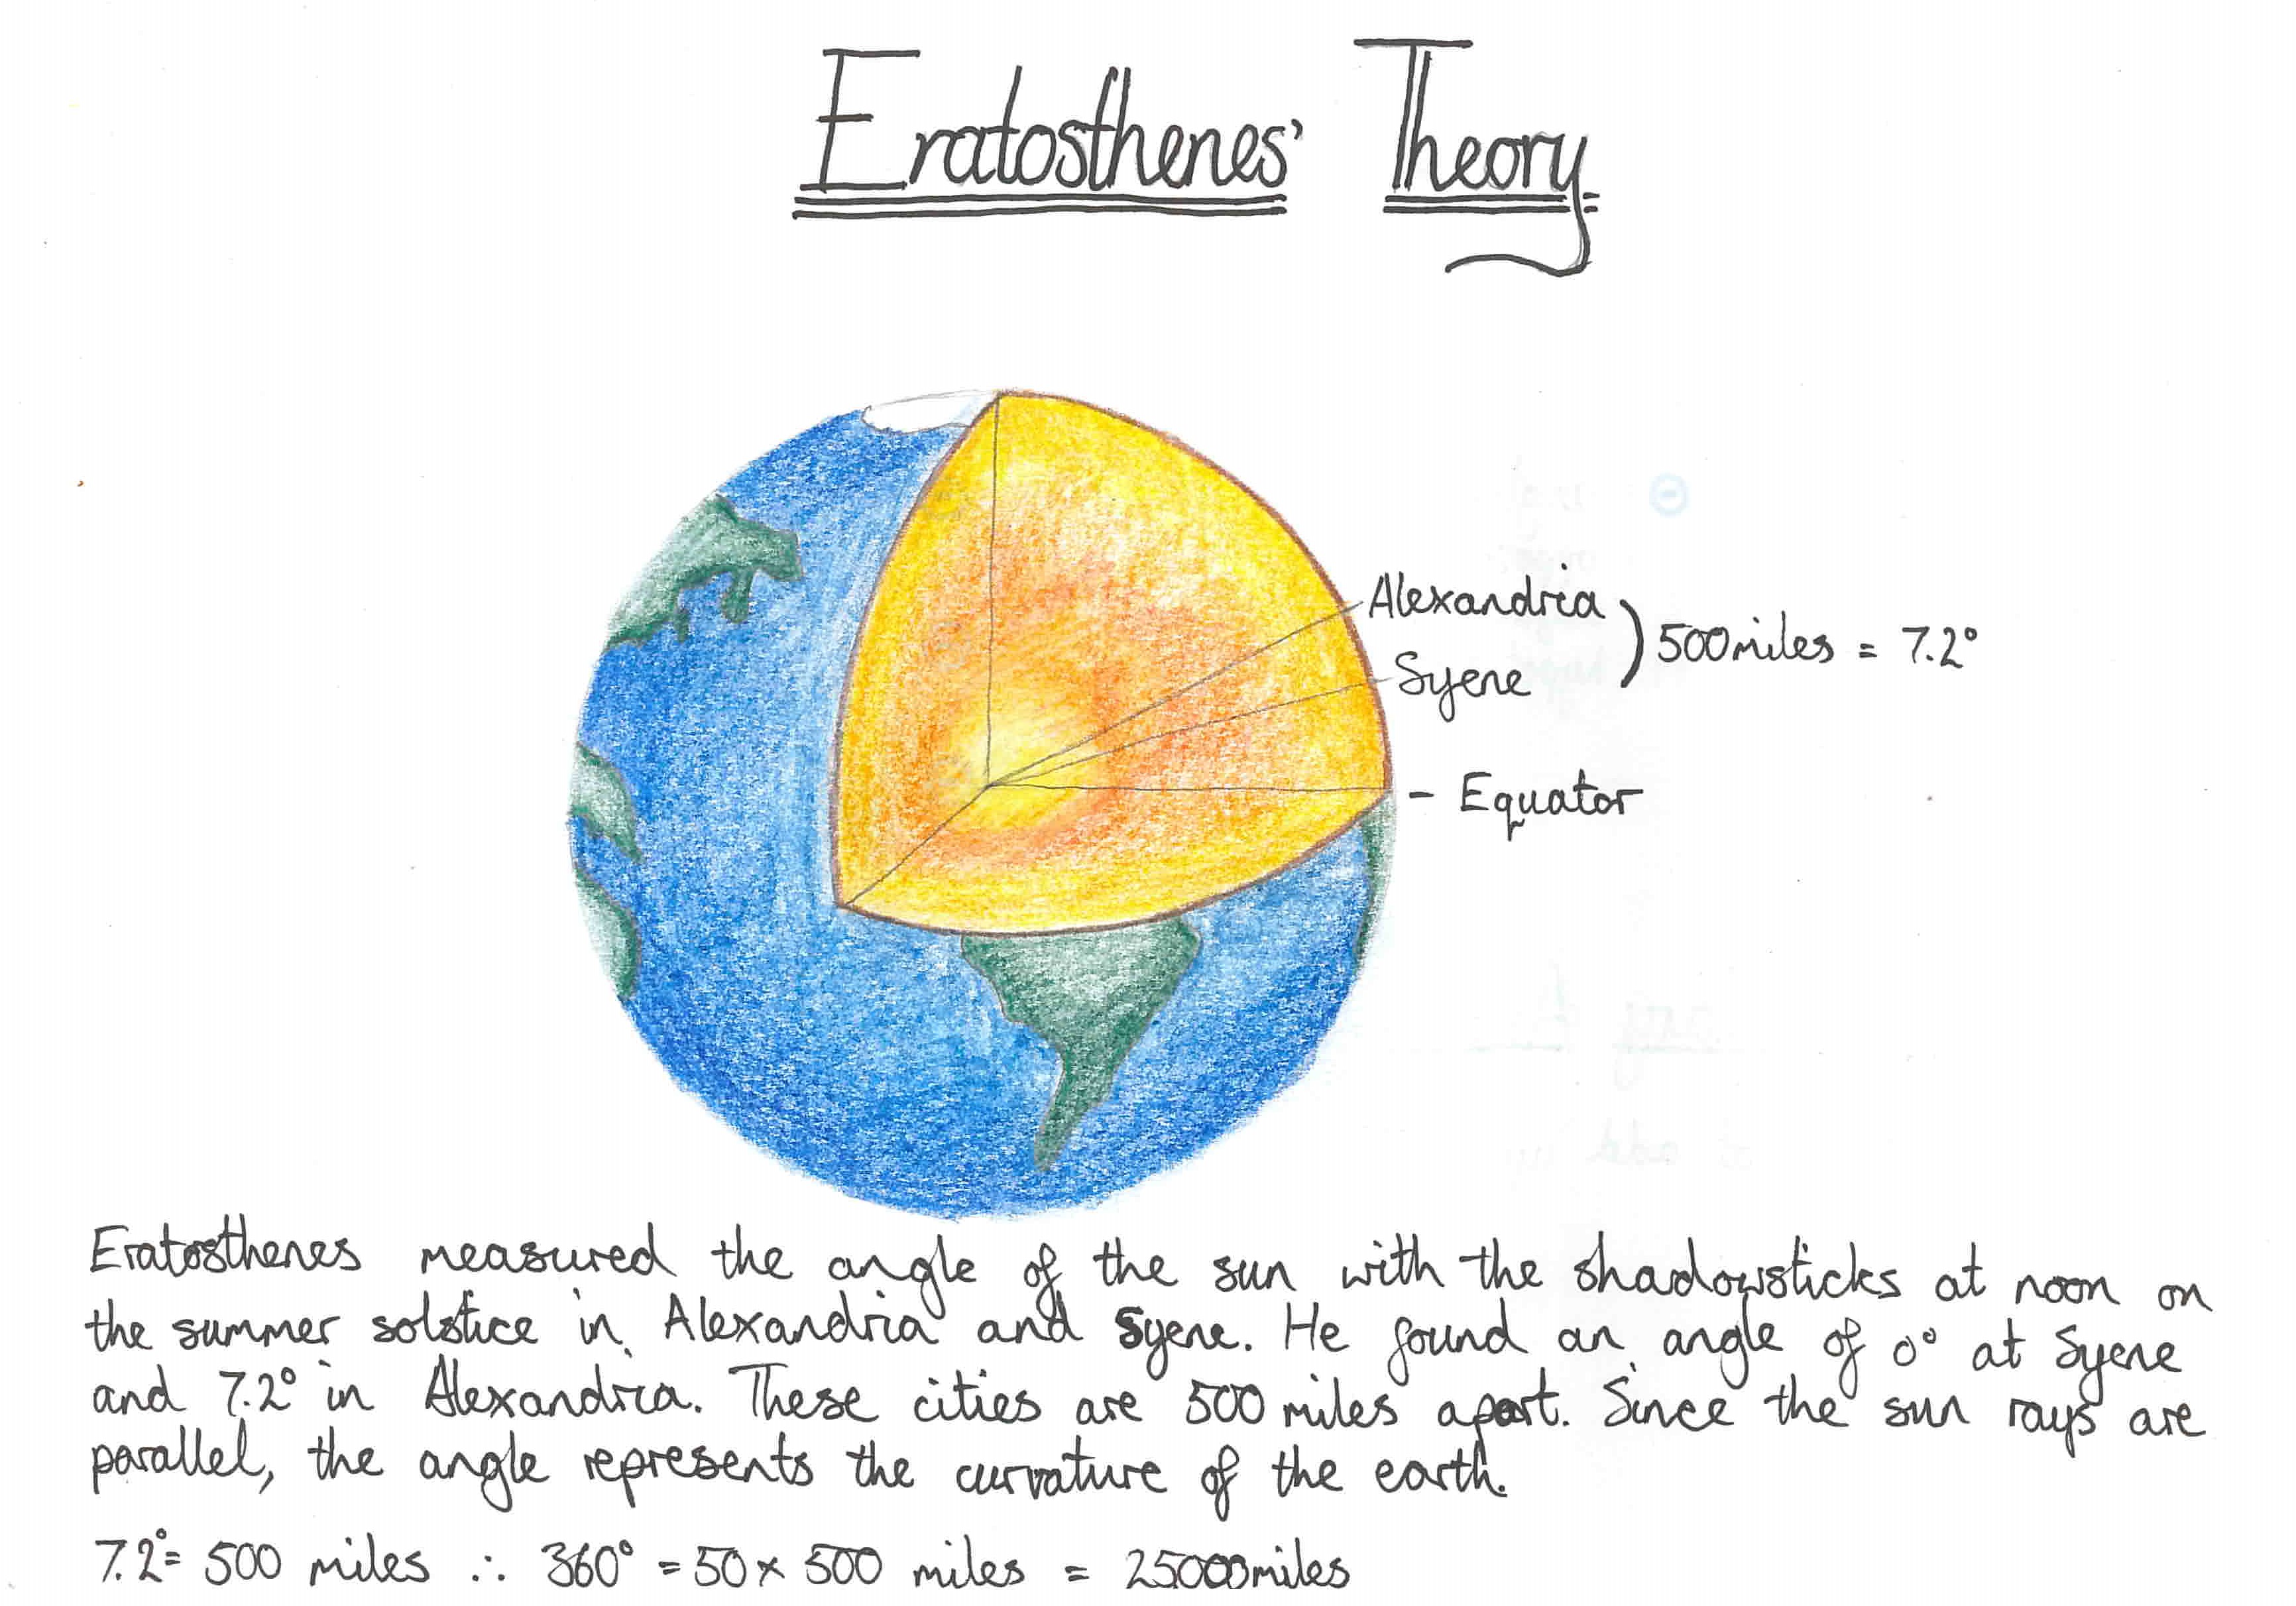 Eratosthenes' Theory
Alexandria
Syene
500miles = 7.2°
- Equator
Eratosthenes measured the angle of the sun with the shadowsticks at noon on
the summer solstice in Alexandria and Syene. He found an angle of 0° at Syene
and 7.2° in Alexandria. These cities are 500 miles apart. Since the sun rays are
parallel, the angle represents the curvature of the earth.
7.2°= 500 miles ∴ 360° = 50 × 500 miles = 25000miles